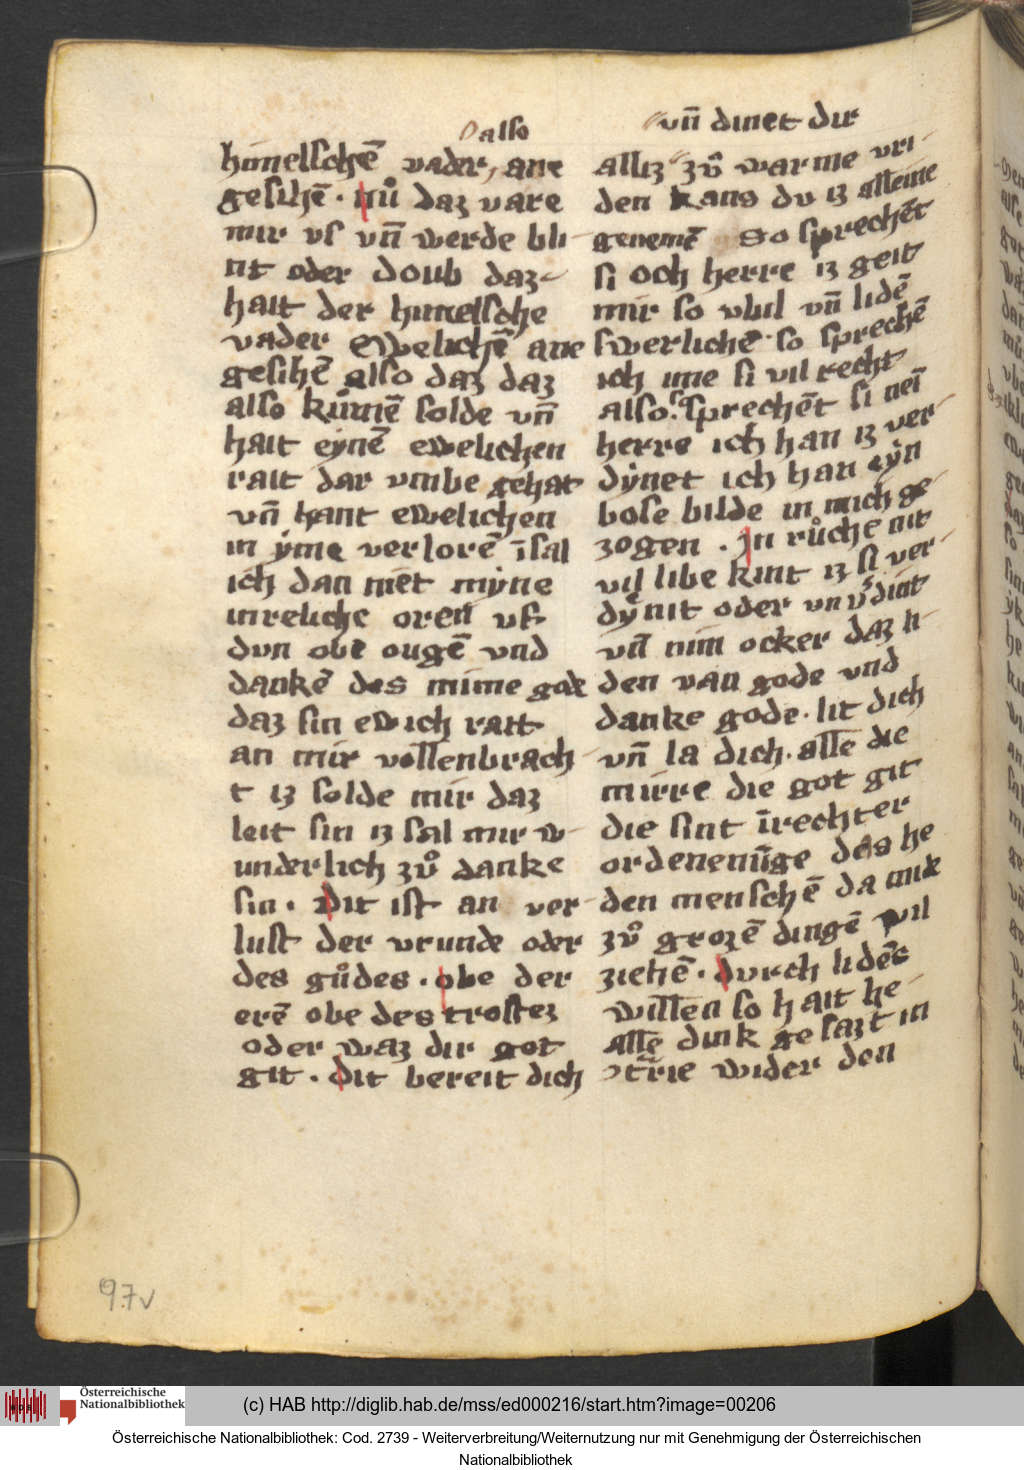 also
himelschē vader, ane
gesihē. nuͦ daz vare
mir vf vn̄ werde bli
nt oder doub daz
hait der himelsche
vader ewelichē ane
gesihē also daz daz
also kumē solde vn̄
hait eynē ewelichen
rait dar vmbe gehat
vn̄ hant ewelichen
in yme verlorē
ich dan niet myne
inreliche oren vf
dun obe ougē vnd
dankē des mime gode
daz sin ewich ratt
an mir vollenbrach
t iz solde mir daz
leit sin iz sal mir w
underlich zuͦ danke
sin. Dit ist an ver
lust der vrunde oder
des guͦdes. obe der
erē obe des trostez
oder waz dir got
git. Dit bereit dich
vn̄ dinet dir
alliz zuͦ warme vri
den kans du iz alleine
genemē So sprechēt
si och herre iz geit
mir so vbil vn̄ lidē
swerlichē so sprechē
ich ime si vil recht
also. So sprechēt si nei
herre ich han iz ver
dynet ich han eyn
bose bilde in mich ge
zogen. In ruͦche nit
vil libe kint iz si ver
dynit oder vnv̄dint
vn̄ nim ocker daz li
den van gode vnd
danke gode. lit dich
vn̄ la dich. alle die
mirre die got git
die sint
ordenenūge des he
den menschē da mide
zuͦ grozē dingē wil
ziehē. durch lidēs
willen so hait he
alle dink gesazt in
wider den
97v
Österreichische
Nationalbibliothek
(c) HAB http://diglib.hab.de/mss/ed000216/start.htm?image=00206
Österreichische Nationalbibliothek: Cod. 2739 - Weiterverbreitung/Weiternutzung nur mit Genehmigung der Österreichischen
Nationalbibliothek